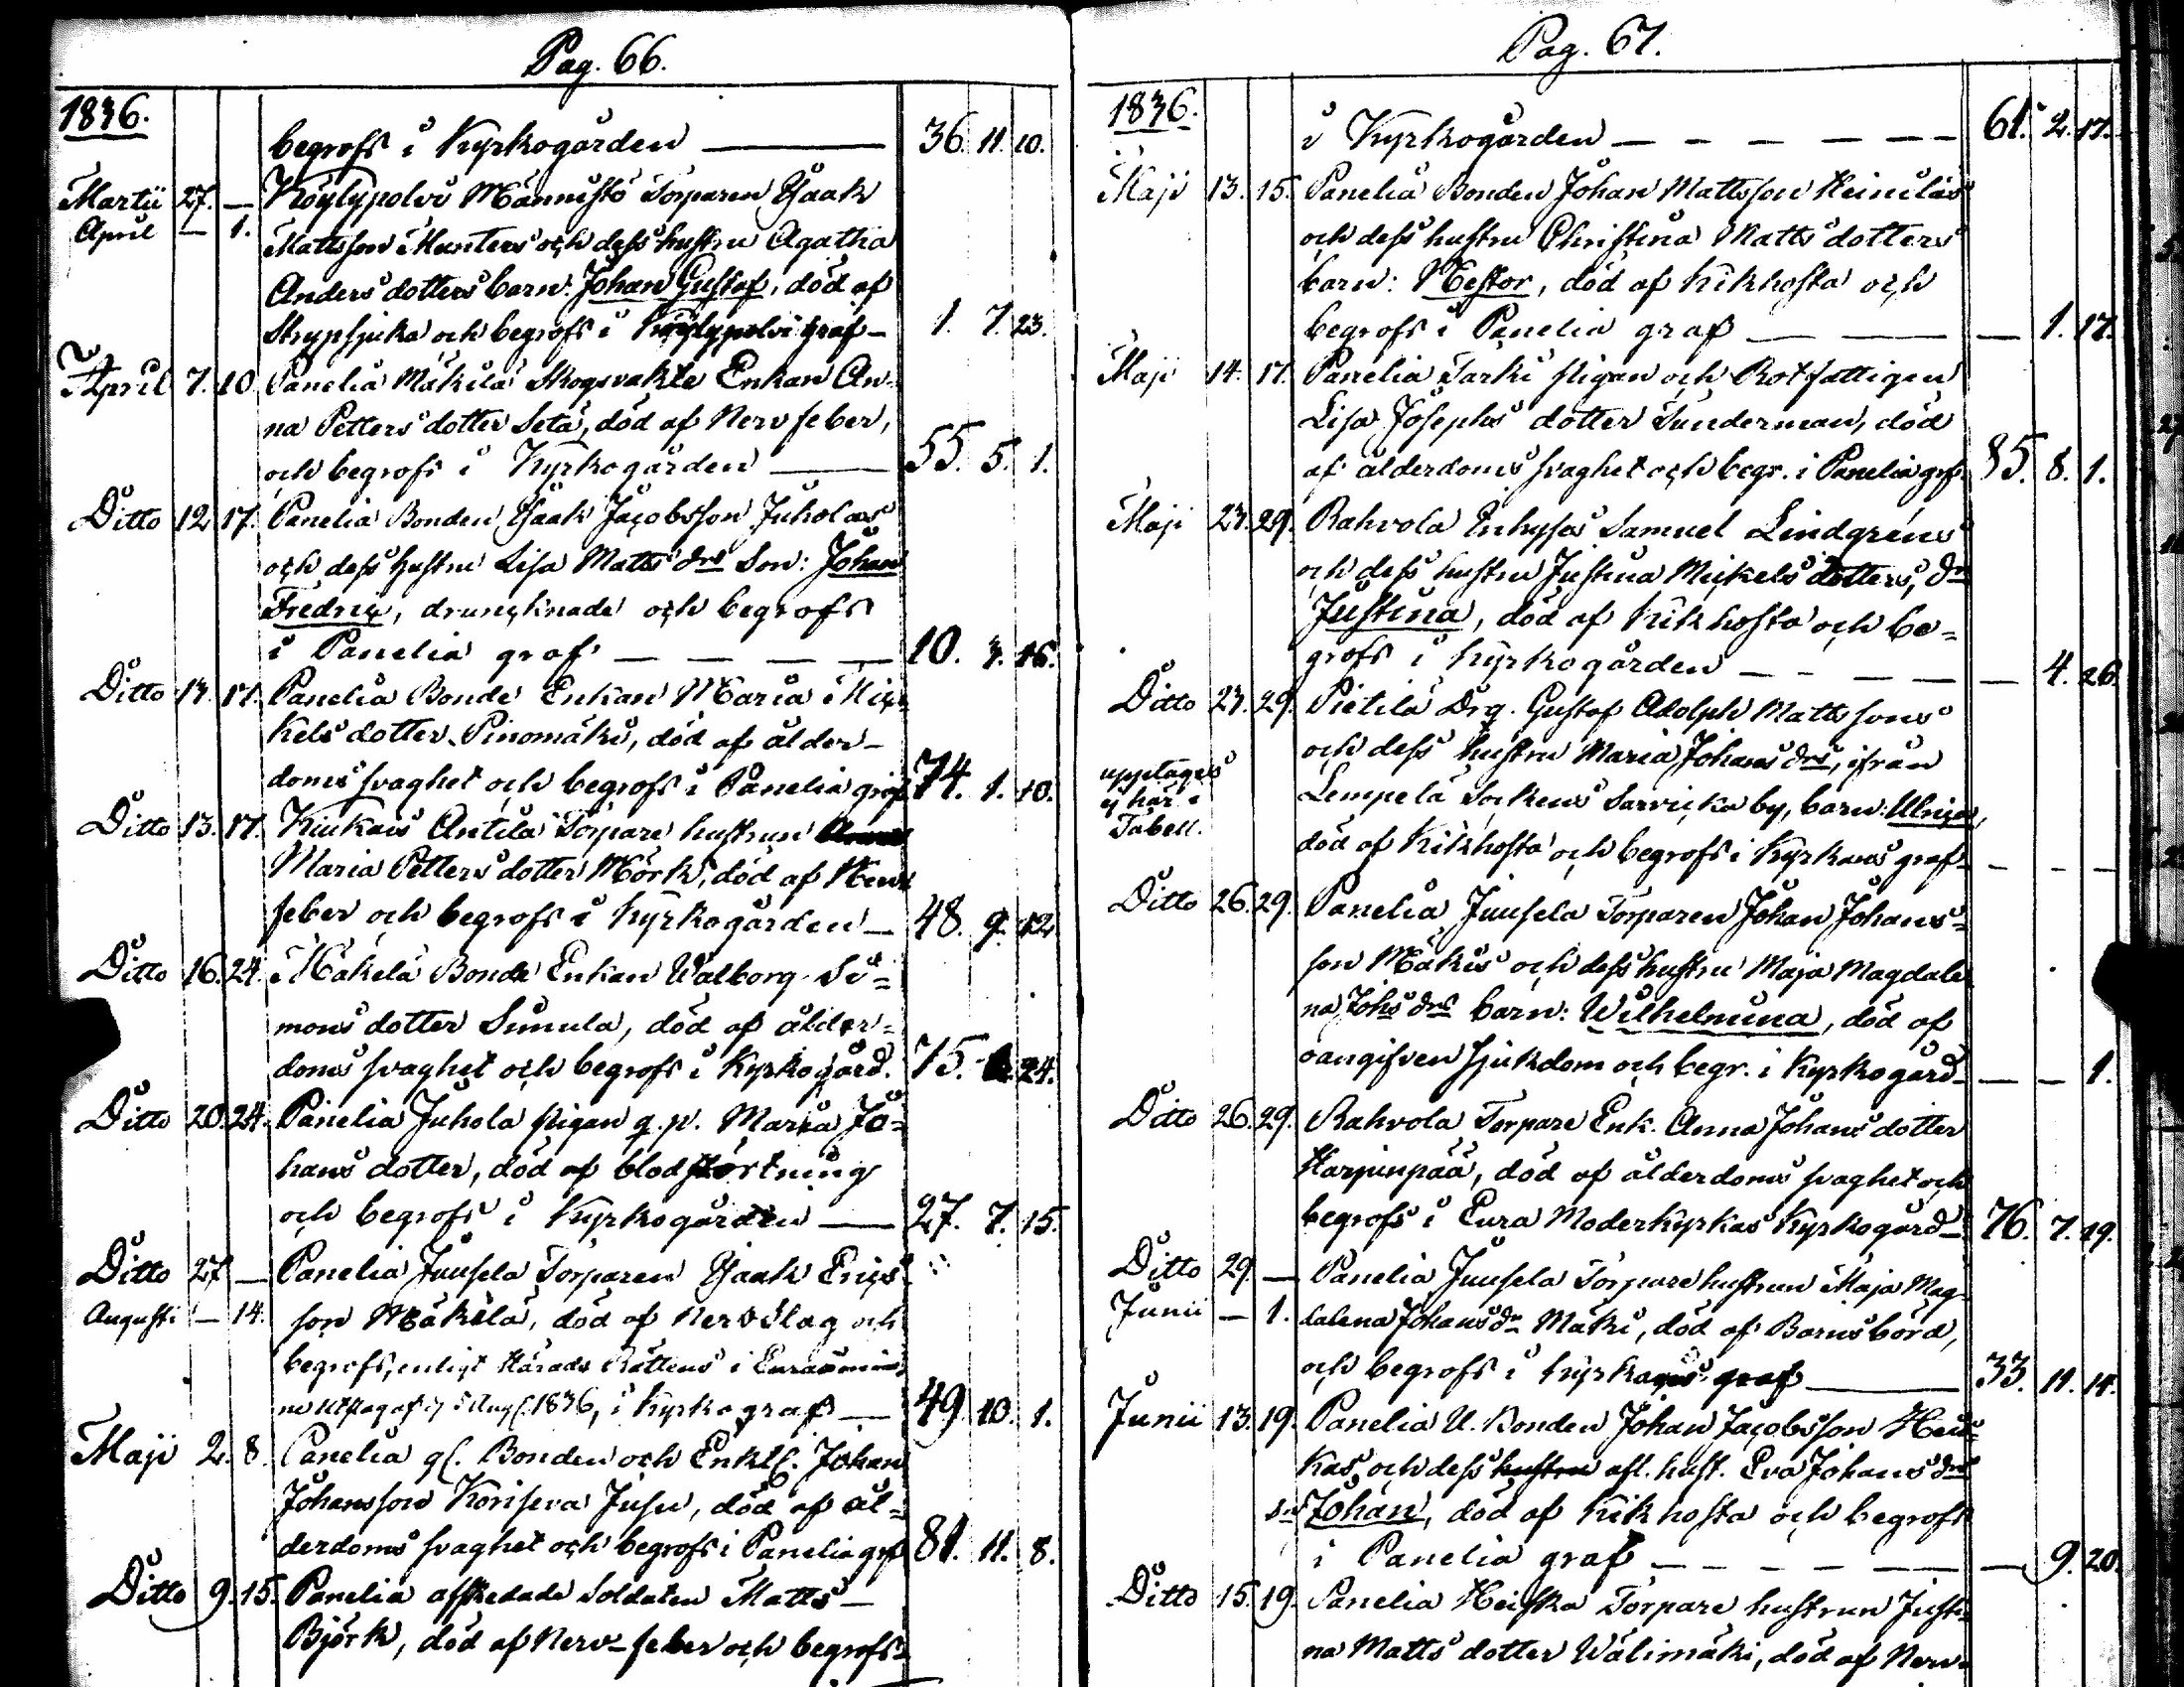 Pag. 66.
1836.
begrofs i Kyrkogården — 36. 11. 10.
Martii 27. — Köylypolvi Männistö Torparen Isaak
April — 1. Mattsson Munters och dess hustru Agatha
Anders dotters barn: Johan Gustaf, död af
Strypsjuka och begrofs i Köylypolvi graf — 1. 7. 23.
April 7. 10. Panelia Mäkilä Skogsvakte Enkan An-
na Petters dotter Setä, död af Nerv feber,
och begrofs i Kyrkogården — 55. 5. 1.
Ditto 12 17. Panelia Bonden Isaak Jacobsson Juholas
och dess hustru Lisa Matts drs Son: Johan
Fredric, druncknade och begrofs
i Panelia graf — — — — 10. 3. 16.
Ditto 13. 17. Panelia Bonde Enkan Maria Mic-
kels dotter Pinomäki, död af ålder-
doms svaghet och begrofs i Panelia graf 74. 1. 10.
Ditto 13. 17. Kiukais Antila Torpare hustrun
Maria Petters dotter Mörk, död af Nerv
feber och begrofs i Kyrkogården — 48. 9. 12
Ditto 16. 24. Mäkelä Bonde Enkan Walborg Si=
mons dotter Simula, död af ålder=
doms svaghet och begrofs i Kyrkogård. 75. 24.
Ditto 20. 24. Panelia Juhola pigan q. p. Maria Jo=
hans dotter, död af blodstörtning
och begrofs i Kyrkogården — 27. 7. 15.
Ditto 27 — Panelia Juusela Torparen Isaak Erics
Augusti — 14. son Mäkilä, död af Nerv Slag och
begrofs, enligt Härads Rättens i Euraåminne
ne utslag af 5 Aug. 1836, i Kyrko graf — 49 10. 1.
Maji 2. 8. Panelia gl. Bonden och Enkl. Johan
Johansson Koriseva Jusu, död af ål=
derdoms svaghet och begrofs i Panelia grf 81. 11. 8.
Ditto 9. 15. Panelia afskedade Soldaten Matts —
Björk, död af Nerv-feber och begrofs
Pag. 67.
1836.
i Kyrkogården — — — — — — 61. 2. 17.
Maji 13. 15. Panelia Bonden Johan Mattsson Heiniläs
och dess hustru Christina Matts dotters
barn: Nestor, död af Kikhosta och
begrofs i Panelia graf — — — 1. 17.
Maji 14. 17. Panelia Tarki pigan och Rotfattigen
Lisa Josephs dotter Sunderman, död
af ålderdoms svaghet och begr. i Panelia grf. 85. 8. 1.
Maji 23. 29. Rahvola Inhyses Samuel Lindgréns
och dess hustru Justina Mickels dotters, dr
Justina, död af Kikhosta och be=
grofs i Kyrkogården — — — — — 4. 26.
Ditto 23. 29. Pietilä Drg. Gustaf Adolph Mattssons
och dess hustru Maria Johans drs, ifrån
upptages
ej här i
Tabell.
Lempelä Sockens Sarvicka by, barn: Ulrica,
död af Kikhosta och begrofs i Kyrkans graf — — —
Ditto 26. 29. Panelia Juusela Torparen Johan Johans=
son Mäkis och dess hustru Maja Magdale
na Johs drs barn: Wilhelmina, död af
oangifven sjukdom och begr. i Kyrkogård — — — 1.
Ditto 26. 29. Rahvola Torpare Enk. Anna Johans dotter
Harjunpää, död af ålderdoms svaghet och
begrofs i Eura Moderkyrkas Kyrkogård — 76. 7. 19.
Ditto 29. — Panelia Juusela Torpare hustrun Maja Mag-
Junii — 1. dalena Johans dr Mäki, död af Barnsbörd,
och begrofs i Kyrkans graf — 33. 11. 14.
Junii 13. 19. Panelia U. Bonden Johan Jacobsson Heis-
kas, och dess hustru afl. hust. Eva Johans drs
sn Johan, död af Kikhosta och begrofs
i Panelia graf — — — — — — 9. 20.
Ditto 15. 19. Panelia Heiska Torpare hustrun Justi-
na Matts dotter Wälimäki, död af Nerv-